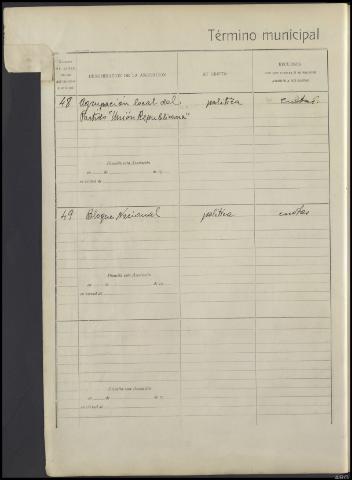 Término municipal
DENOMINACIÓN DE LA ASOCIACIÓN
SU OBJETO
RECURSOS
48 Agrupación local del política cuotas.
Partido "Unión Republicana"
Disuelta esta Asociación
en de de 19
en virtud de
49 Bloque Nacional política cuotas
Disuelta esta Asociación
en de de 19
en virtud de
Disuelta esta Asociación
en de de 19
en virtud de